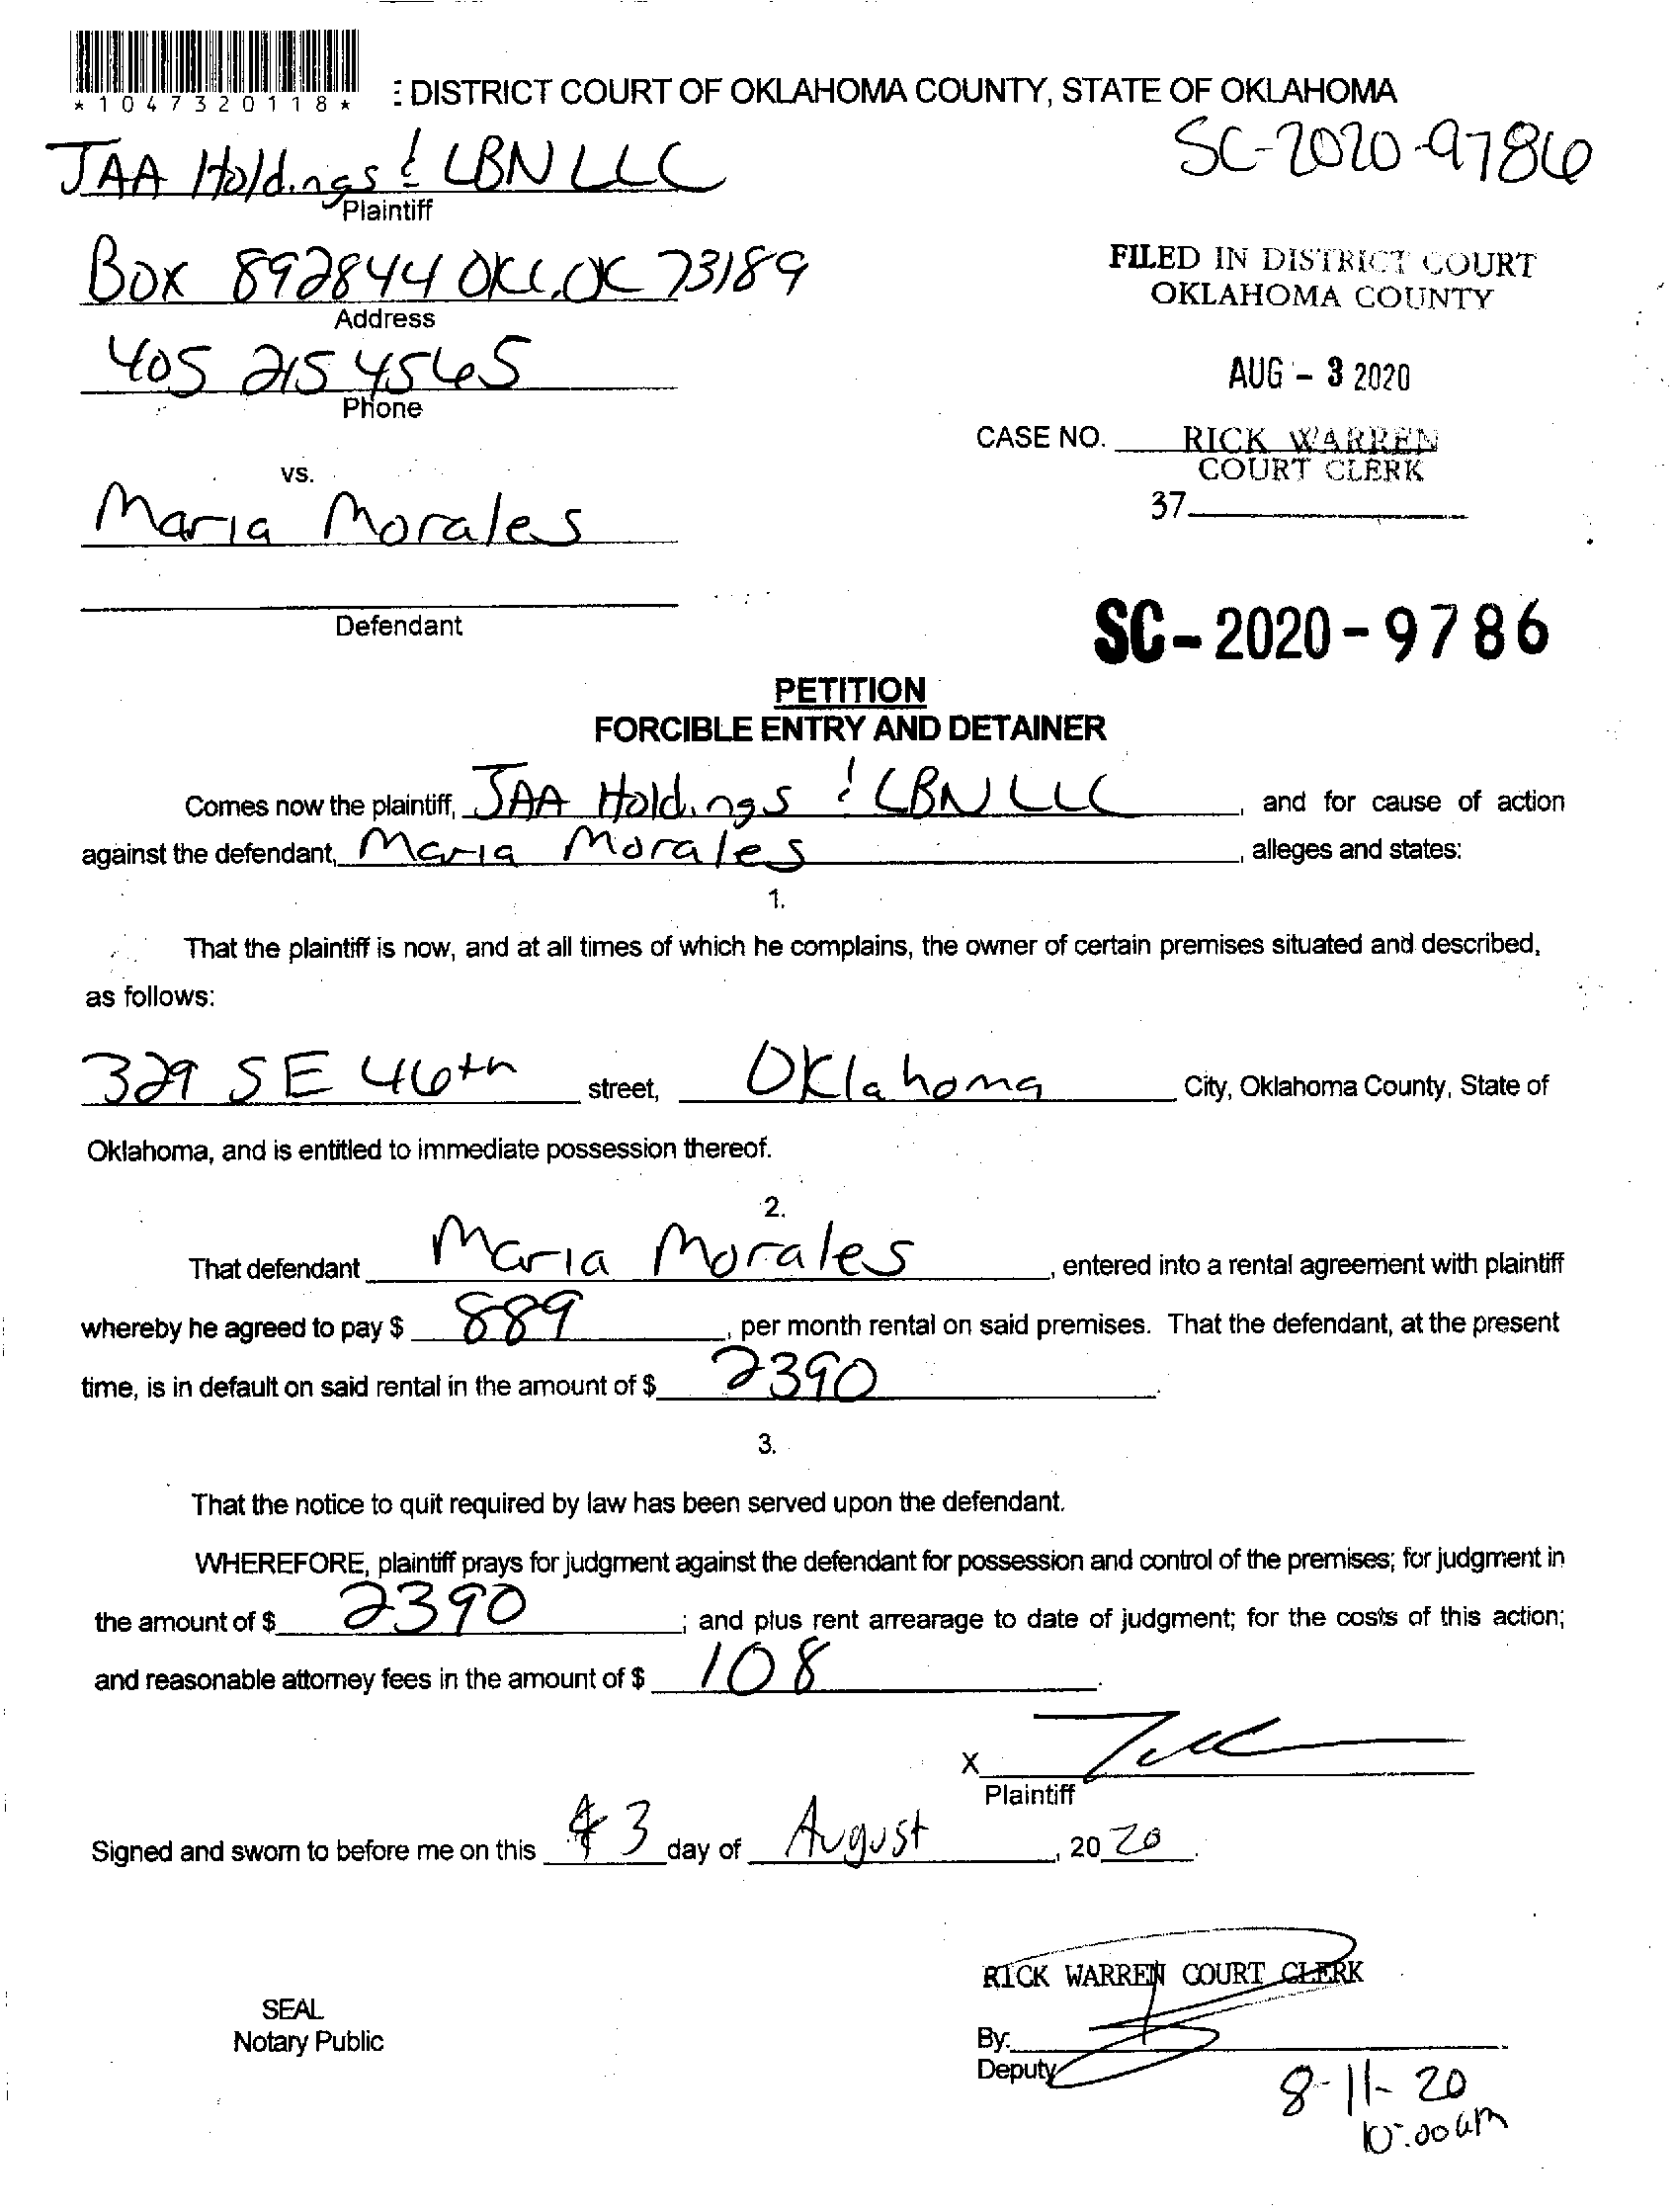 *1047320118*
: DISTRICT COURT OF OKLAHOMA COUNTY, STATE OF OKLAHOMA
SC-2020-9786
JAA Holdings & LBN LLC
Plaintiff
Box 892844 OKC, OK 73189
Address
FILED IN DISTRICT COURT
OKLAHOMA COUNTY
405 215 4565
Phone
AUG - 3 2020
CASE NO. RICK WARREN
COURT CLERK
vs.
37
Maria Morales
Defendant
SC-2020-9786
PETITION
FORCIBLE ENTRY AND DETAINER
Comes now the plaintiff, JAA Holdings & LBN LLC, and for cause of action
against the defendant, Maria Morales, alleges and states:
1.
That the plaintiff is now, and at all times of which he complains, the owner of certain premises situated and described,
as follows:
329 SE 46th street, Oklahoma City, Oklahoma County, State of
Oklahoma, and is entitled to immediate possession thereof.
2.
That defendant Maria Morales, entered into a rental agreement with plaintiff
whereby he agreed to pay $ 889, per month rental on said premises. That the defendant, at the present
time, is in default on said rental in the amount of $ 2390.
3.
That the notice to quit required by law has been served upon the defendant.
WHEREFORE, plaintiff prays for judgment against the defendant for possession and control of the premises; for judgment in
the amount of $ 2390; and plus rent arrearage to date of judgment; for the costs of this action;
and reasonable attorney fees in the amount of $ 108.
X
Plaintiff
Signed and sworn to before me on this 3 day of August, 2020.
RICK WARREN COURT CLERK
SEAL
Notary Public
By:
Deputy
8-11-20
10:00am